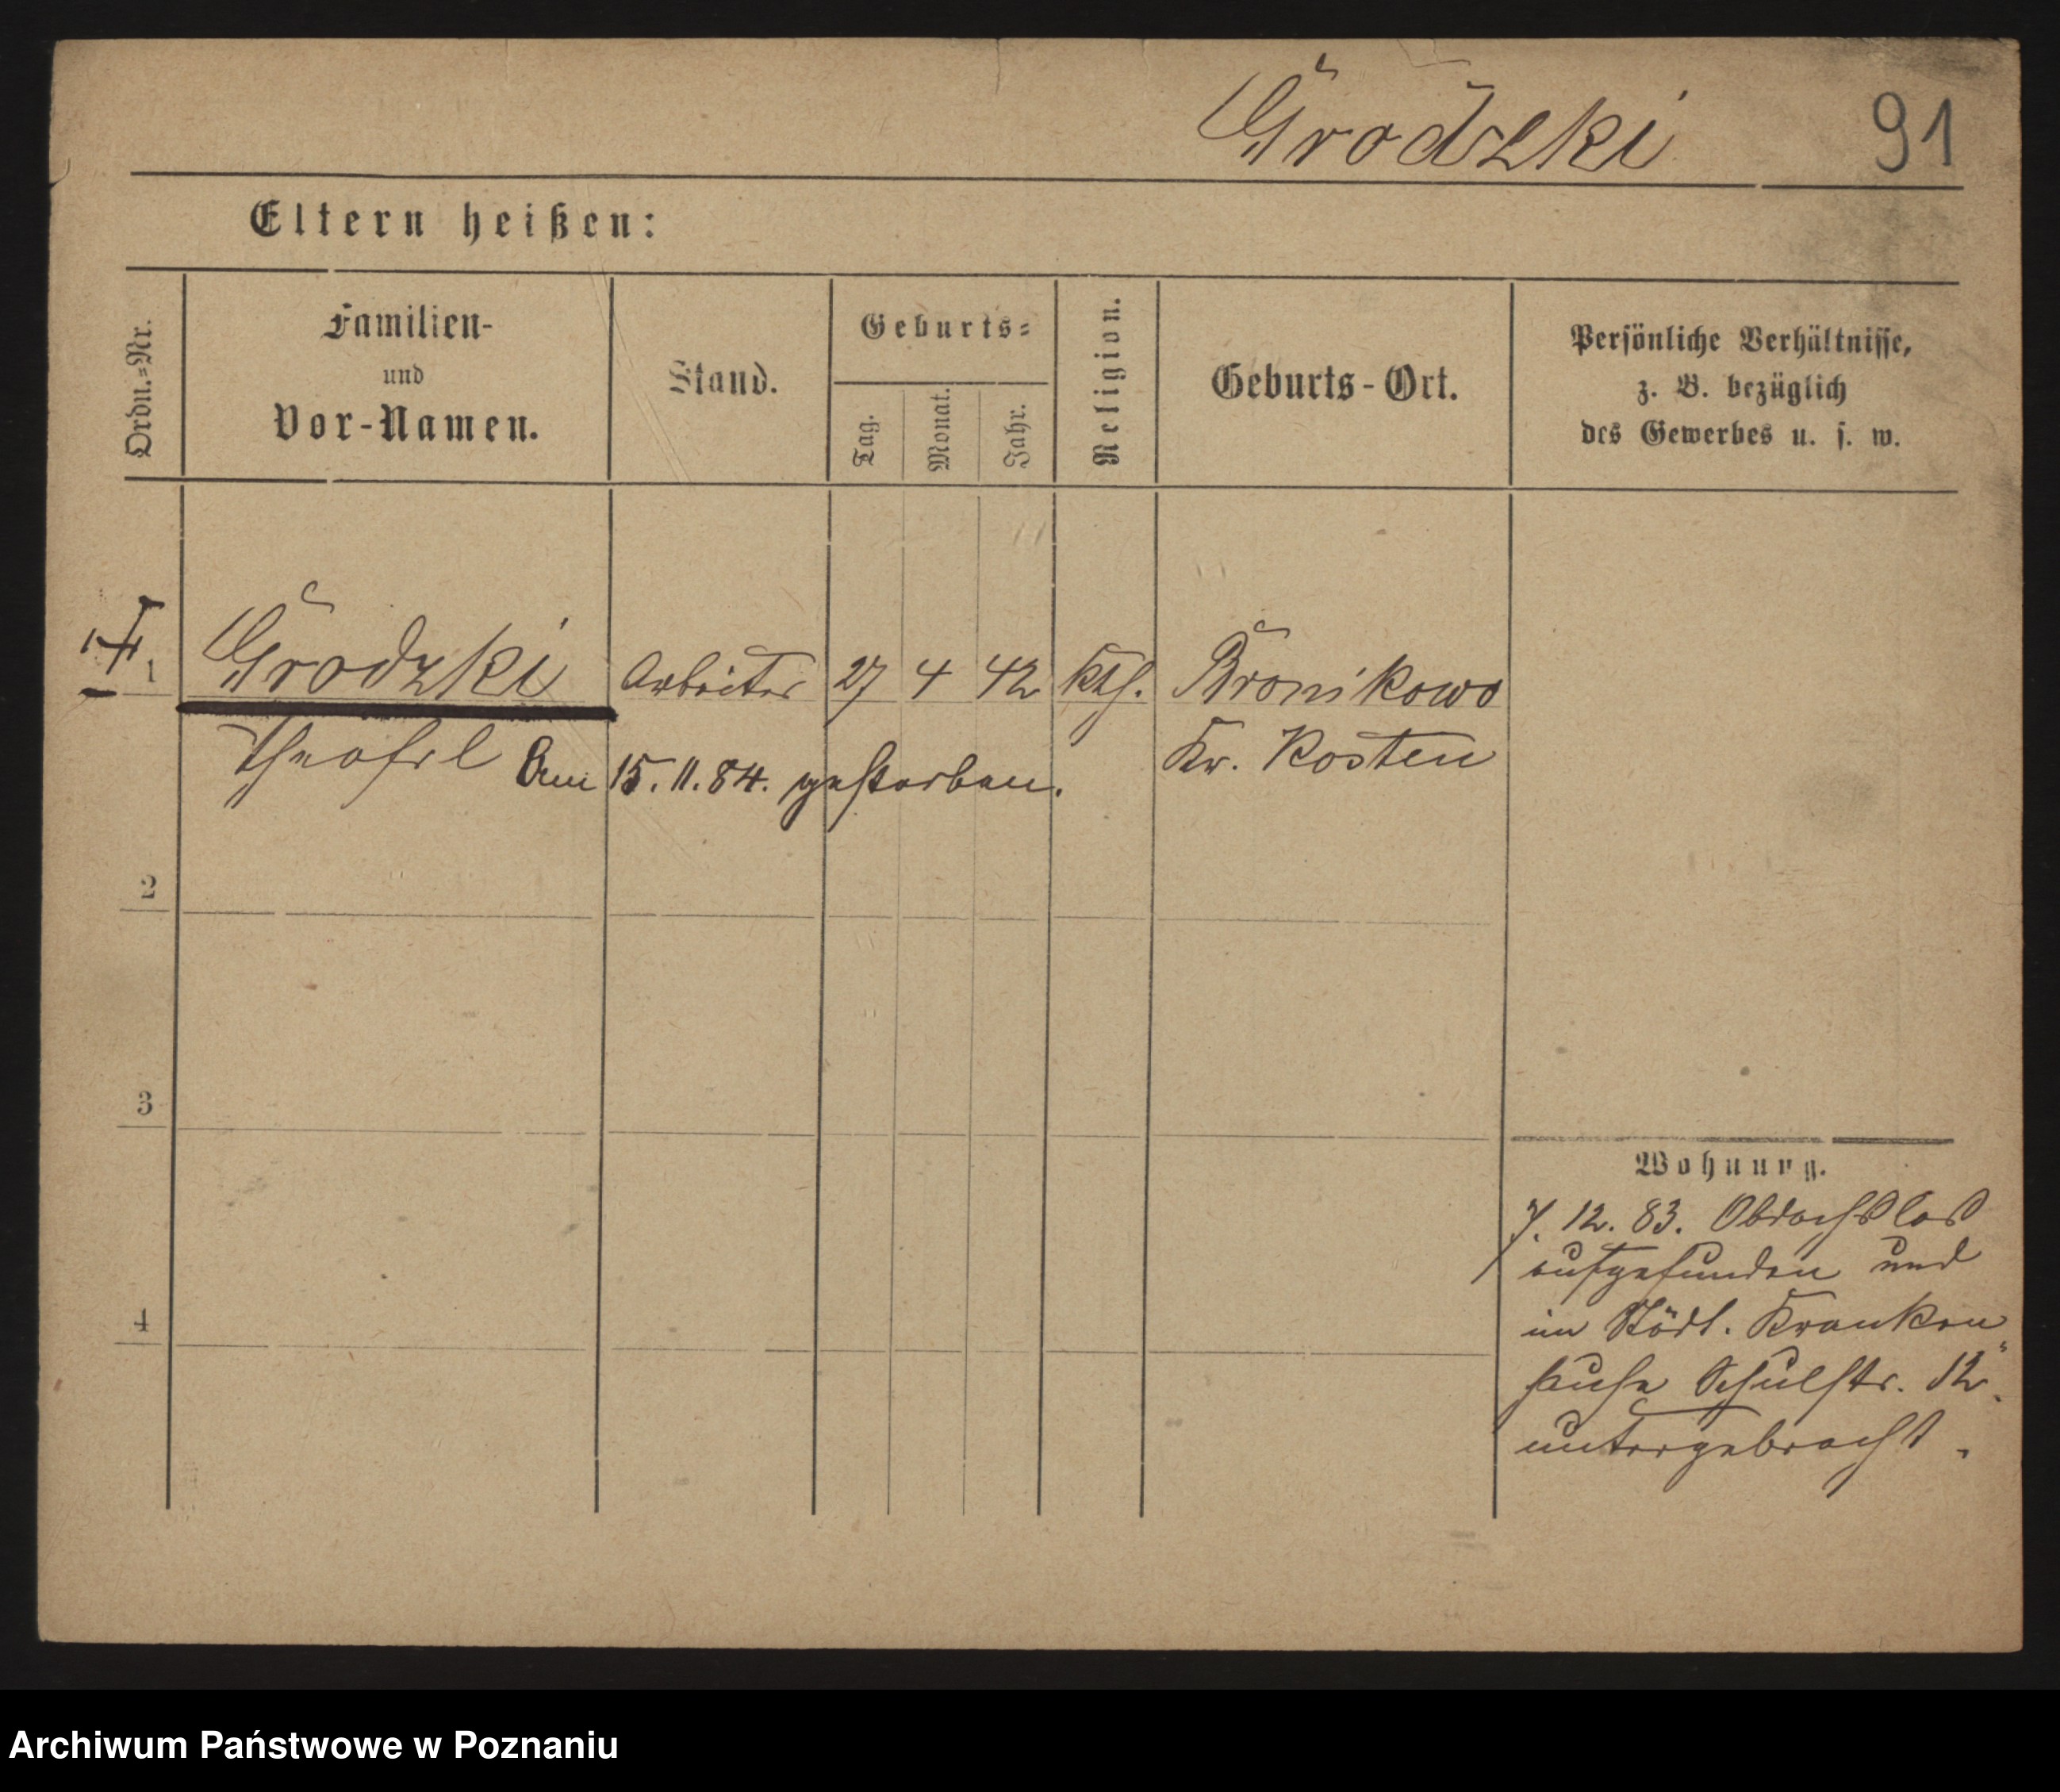 Grodzki 91
Eltern heißen:
Ordn.=Nr.
Familien-
und
Vor-Namen.
Stand.
Geburts=
Tag.
Monat.
Jahr.
Religion.
Geburts-Ort.
Persönliche Verhältnisse,
z. B. bezüglich
des Gewerbes u. s. w.
1 Grodzki Arbeiter 27 4 42 kth. Bronikowo
Theofil Am 15.11.84. gestorben. Kr. Kosten
2
3
4
Wohnung.
7.12.83. Obdachslos
aufgefunden und
im Städt. Kranken
hause Schulstr. 12.
untergebracht.
Archiwum Państwowe w Poznaniu